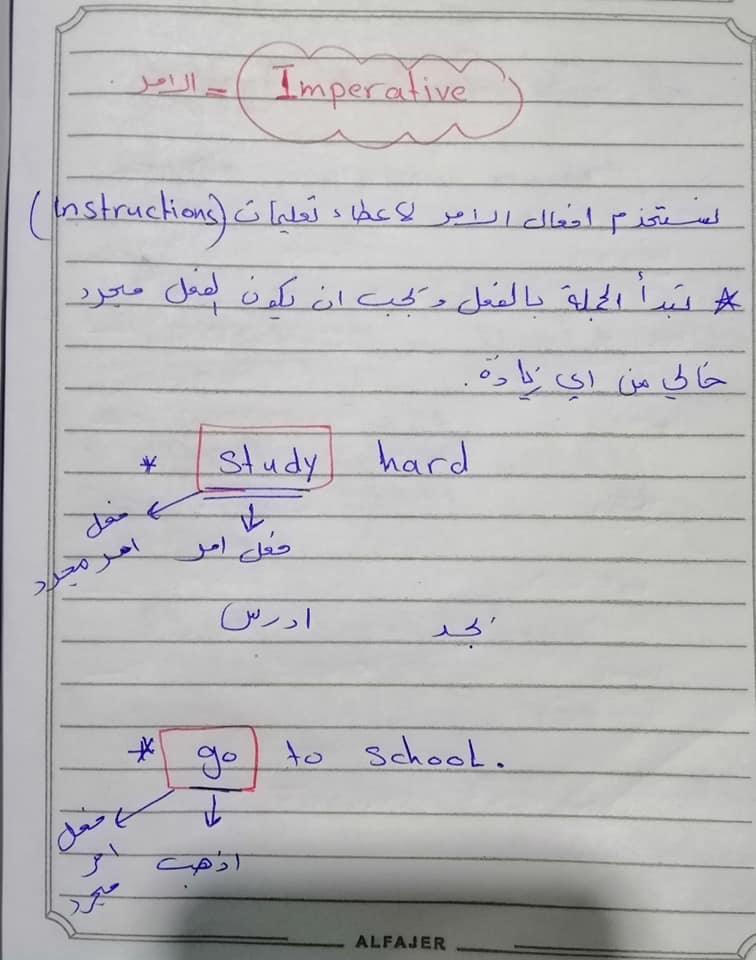 Imperative = الامر.
نستخدم افعال الامر لاعطاء تعليمات (Instructions)
* تبدأ الجملة بالفعل و يجب ان يكون الفعل مجرد
خالي من اي زيادة.
* Study hard
فعل امر
فعل امر مجرد
ادرس بجد
* go to school.
اذهب
فعل امر مجرد
ALFAJER